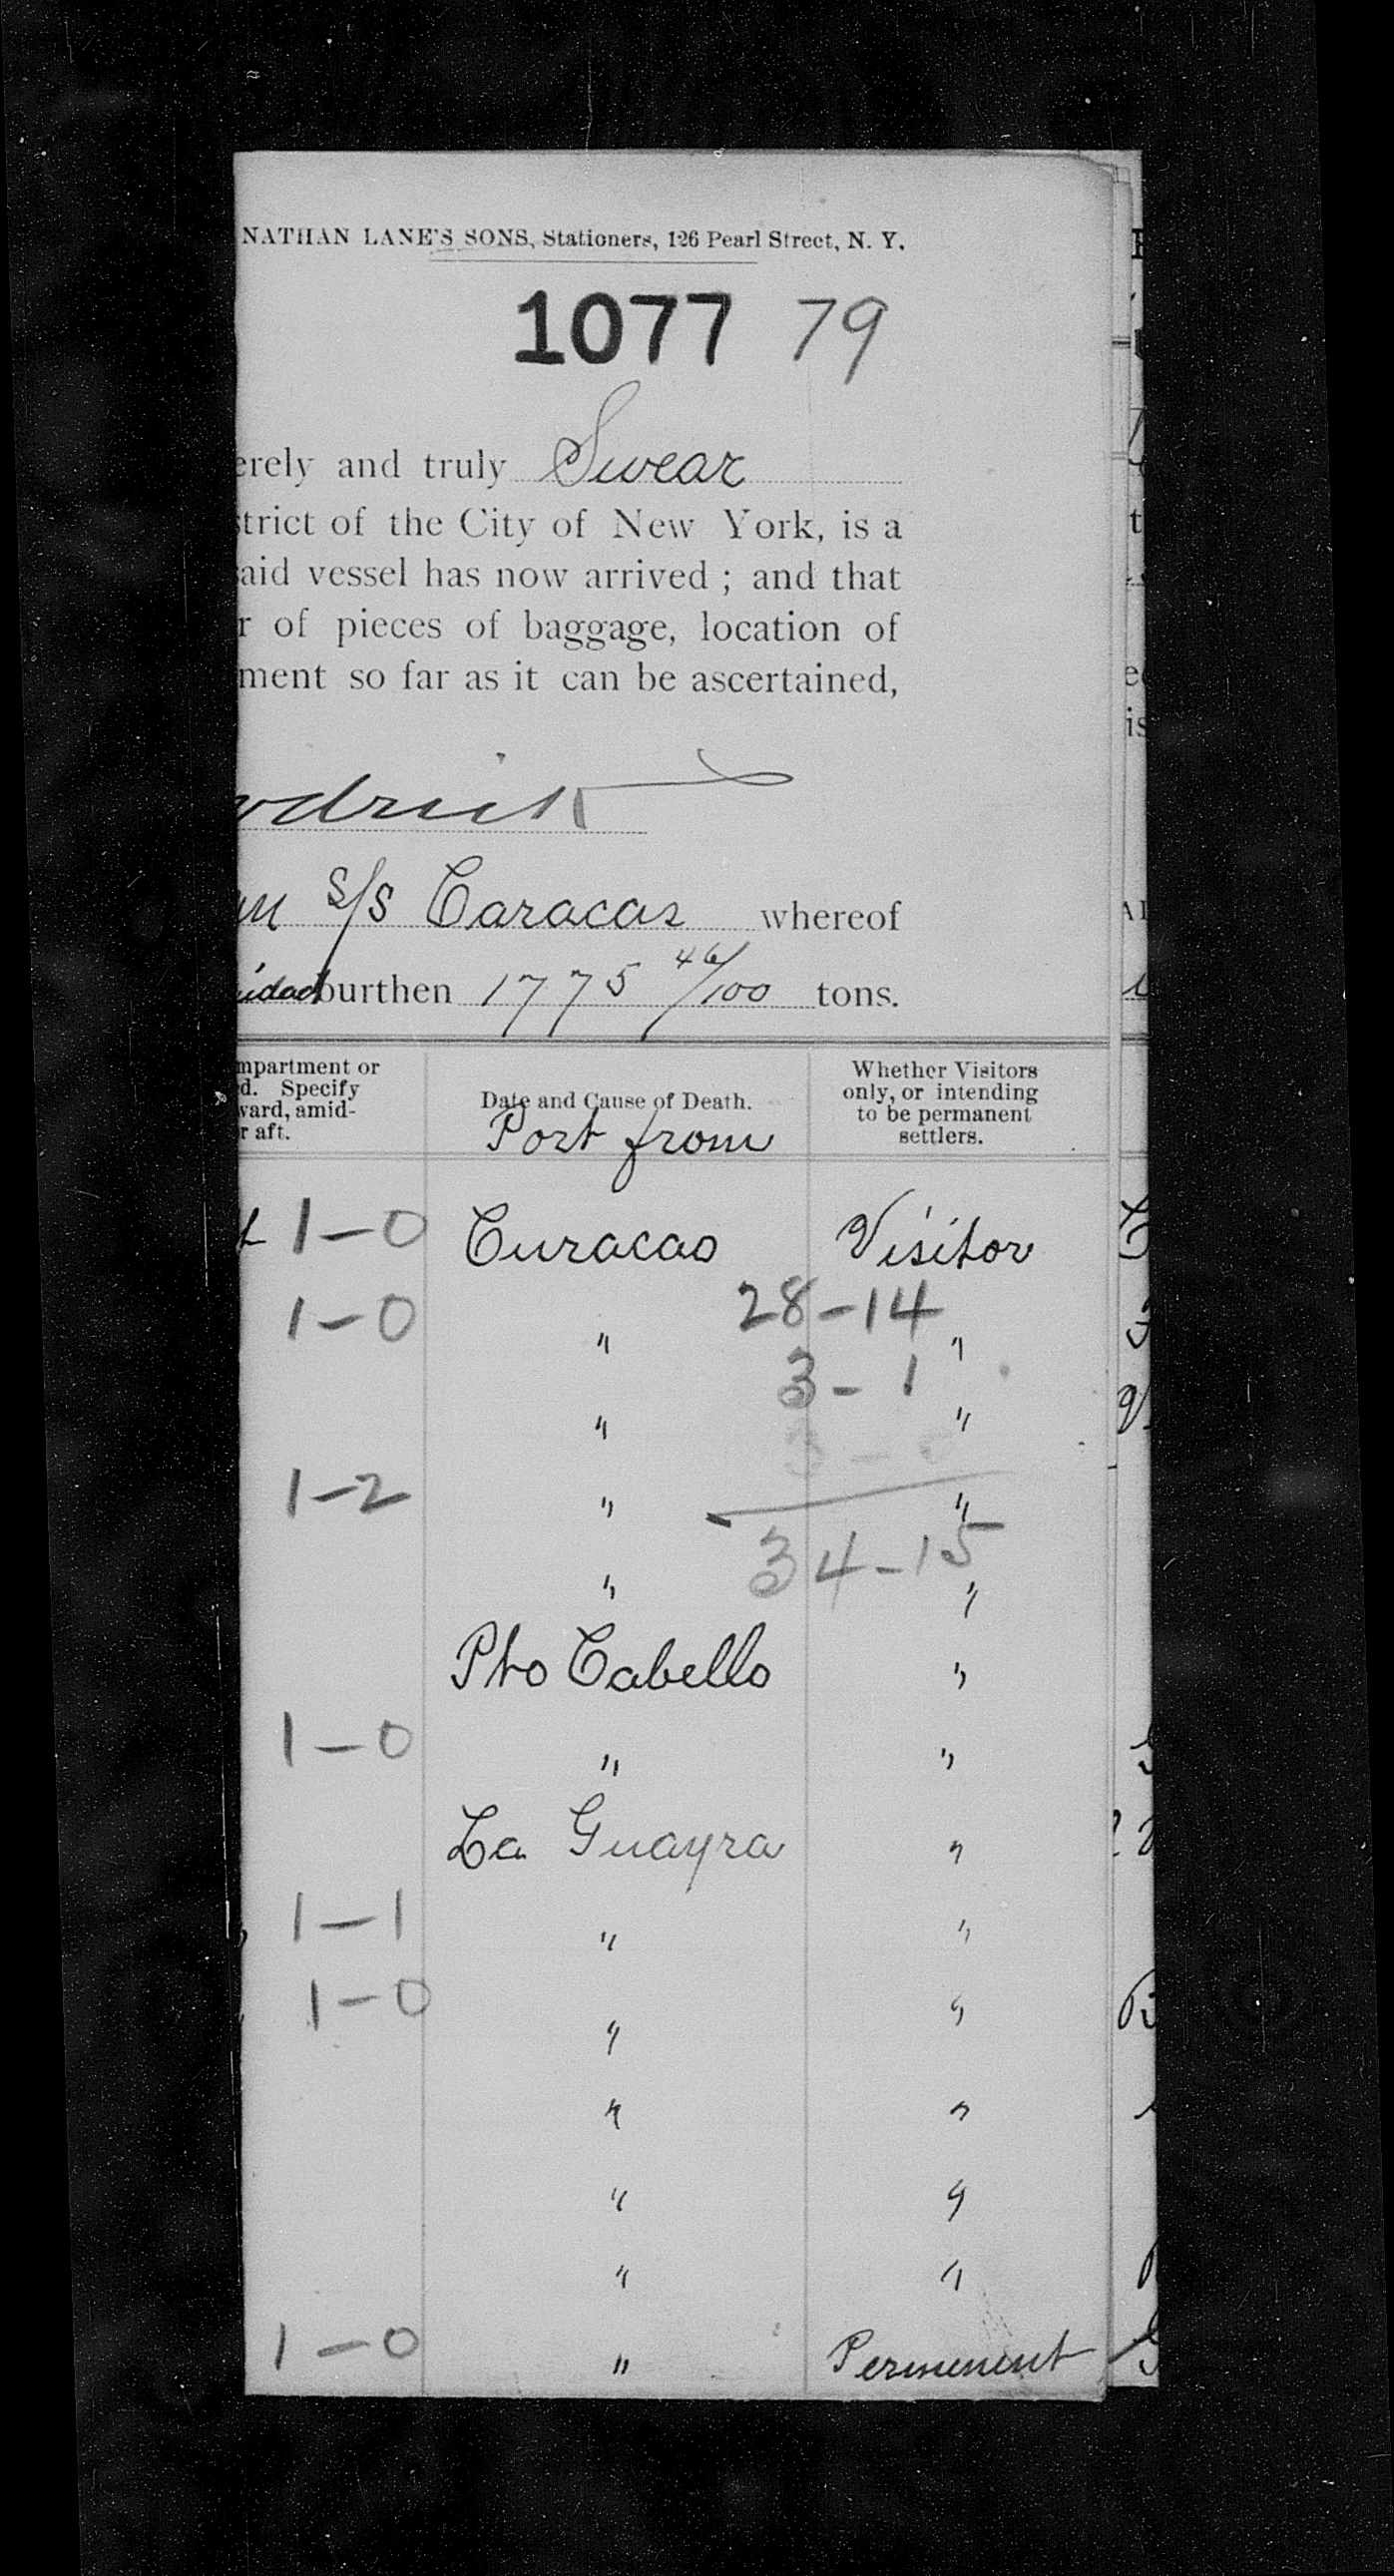 NATHAN LANE'S SONS, Stationers, 126 Pearl Street, N. Y.
1077 79
erely and truly Swear
strict of the City of New York, is a
said vessel has now arrived ; and that
r of pieces of baggage, location of
ment so far as it can be ascertained,
odrick
S/S Caracas whereof
idad burthen 1775 46/100 tons.
mpartment or
d. Specify
ward, amid-
r aft.
Date and Cause of Death.
Port from
Whether Visitors
only, or intending
to be permanent
settlers.
1-0 Curacao Visitor
1-0 " 28-14 "
3-1
" "
3-
1-2 " "
34-15
" "
Pto Cabello "
1-0 " "
La Guayra "
1-1 " "
1-0 " "
" "
" "
" "
1-0 " Permenent